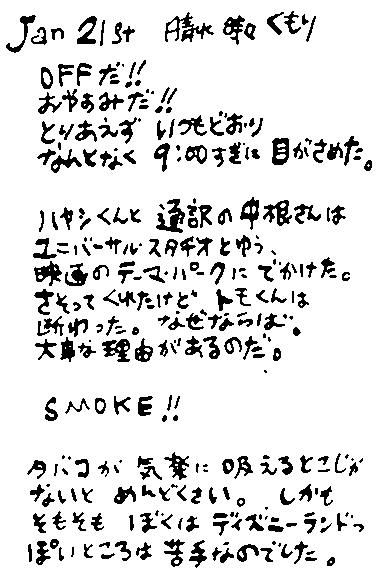 Jan 21st 晴れ 時々 くもり
OFFだ!!
おやすみだ!!
とりあえず いつもどおり
なんとなく 9:00すぎに 目がさめた。
ハヤシくんと 通訳の中根さんは
ユニバーサルスタヂオとゆう、
映画のテーマ・パークに でかけた。
さそってくれたけど トモくんは
断わった。なぜならば。
大事な理由があるのだ。
SMOKE!!
タバコが 気楽に 吸えるとこじが
ないと めんどくさい。 しかも
そもそも ぼくは ディズニーランドっ
ぽいところは 苦手なのでした。